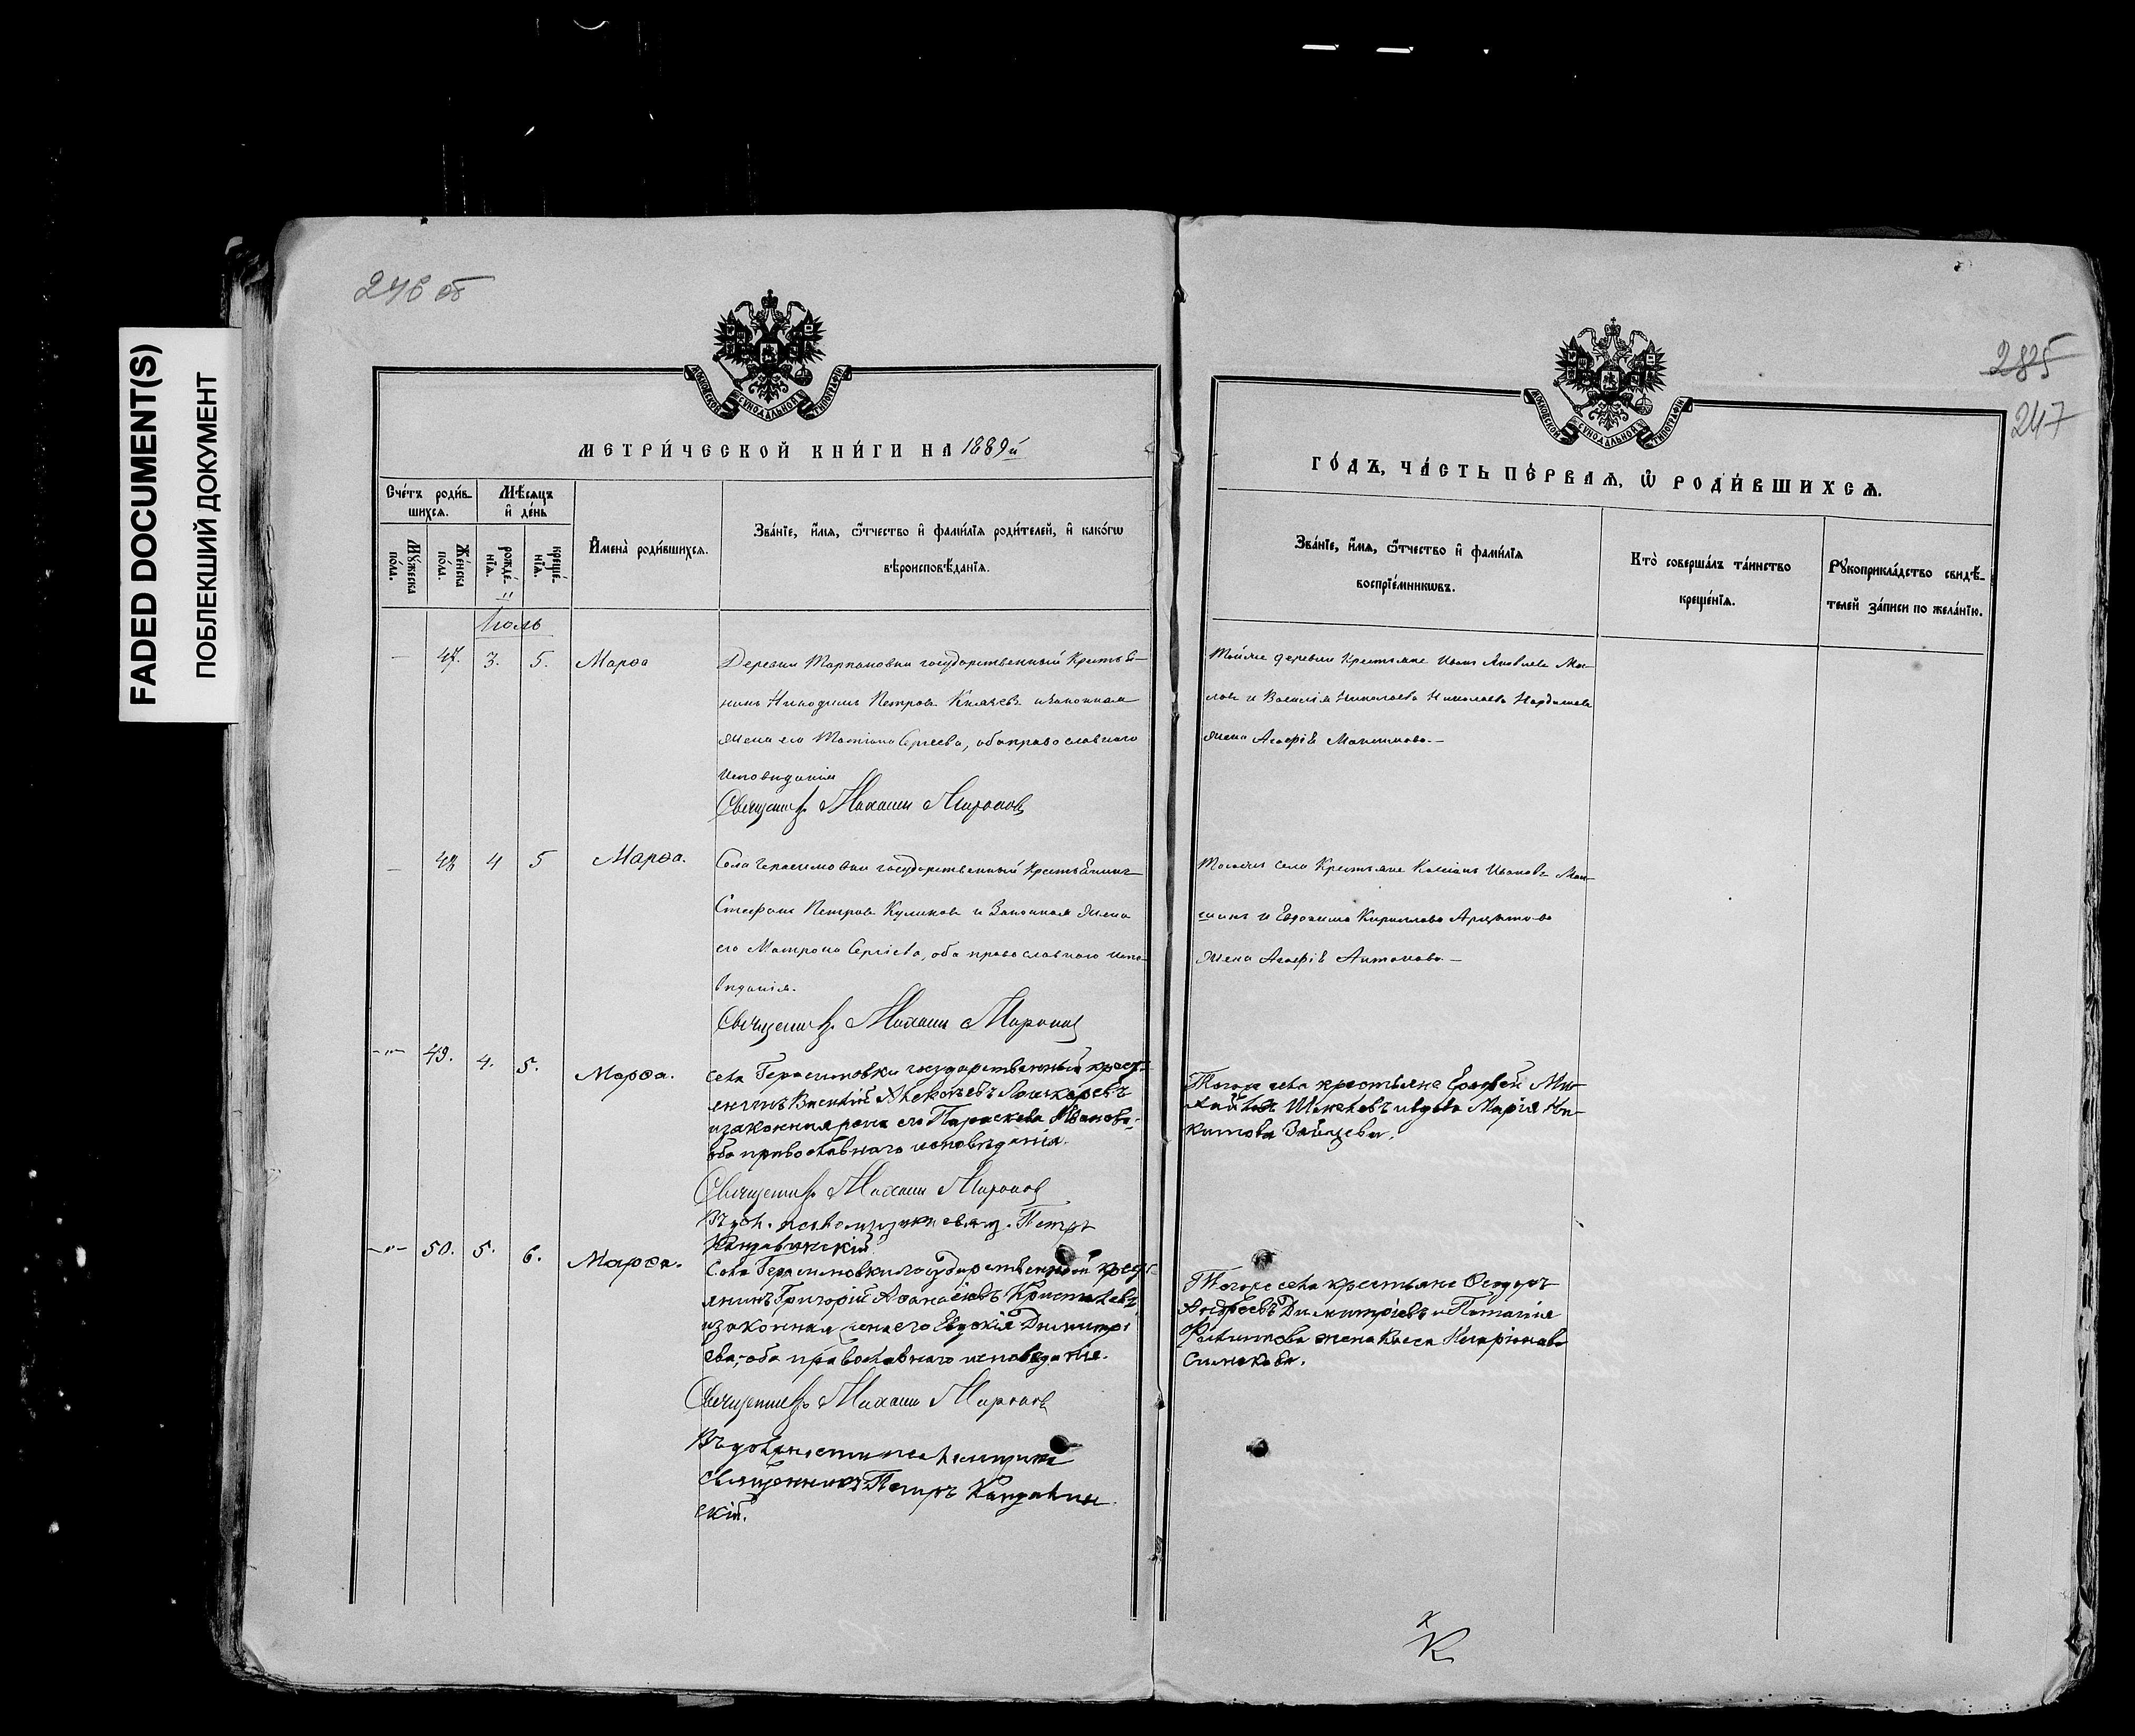 FADED DOCUMENT(S)
ПОБЛЕКШИЙ ДОКУМЕНТ
246 об
285
247
МОСКОВСКОЙ СѴНОДАЛЬНОЙ ТИПОГРАФІИ
МЕТРИ́ЧЕСКОЙ КНИ́ГИ НА 1889й
Сче́тъ роди́в-
шихсѧ.
Мꙋжеска по́ла.
Же́нска по́ла.
Мѣ́сѧцъ
и҆ де́нь
рожде́-
нїѧ.
креще́-
нїѧ.
И҆мена̀ роди́вшихсѧ.
Зва́нїе, и҆́мѧ, ѻ҆́тчество и҆ фами́лїѧ роди́телей, и҆ како́гѡ
вѣроисповѣ́данїѧ.
Іюль
47. 3. 5. Марѳа
Деревни государственный Крестья-
нинъ Никодимъ Петровъ Князевъ и законная
жена его Татіана Сергеева, оба православнаго
исповеданія
Священникъ Михаилъ Мироновъ
48 4 5 Марѳа.
Села Герасимовки государственный Крестьянинъ
Стефанъ Петровъ Куликовъ и Законная жена
его Матрона Сергіева, оба православнаго испо-
веданія.
Священникъ Михаилъ Мироновъ
-"- 49. 4. 5. Марѳа.
села Герасимовки государственный крест-
янинъ Василій Алексѣевъ
и законная жена его Параскева Иванова,
оба православнаго исповѣданія.
Священникъ Михаилъ Мироновъ
Въ дол. псаломщика свящ. Петръ
-"- 50. 5. 6. Марѳа.
Села Герасимовки государственный крест-
янинъ Григорій Аѳанасіевъ
и законная жена его Евдокія Димитрі-
ева, оба православнаго исповеданіе.
Священникъ Михаилъ Мироновъ
Въ должности псаломщика
священникъ Петръ
скій.
ГО́ДЪ, ЧА́СТЬ ПЕ́РВАѦ, Ѡ҆ РОДИ́ВШИХСѦ.
МОСКОВСКОЙ СѴНОДАЛЬНОЙ ТИПОГРАФІИ
Зва́нїе, и҆́мѧ, ѻ҆́тчество и҆ фами́лїѧ
воспрїе́мникѡвъ.
Кто̀ соверша́лъ та́инство
креще́нїѧ.
Рꙋкоприкла́дство свидѣ́-
телей за́писи по жела́нїю.
Тойже деревни Крестьяне Иванъ Яковлевъ
и Василія Николаева
жена Агафія Максимова.-
Тогоже села Крестьяне Касіанъ Ивановъ
и Евдокима Кириллова
жена Агафія Антонова.-
Тогоже села крестьяне
и вдова Марія Ни-
китова Зайцева.
Тогоже села крестьяне Ѳеодоръ
Андреевъ Димитріевъ и
Филиппова жена
К
К